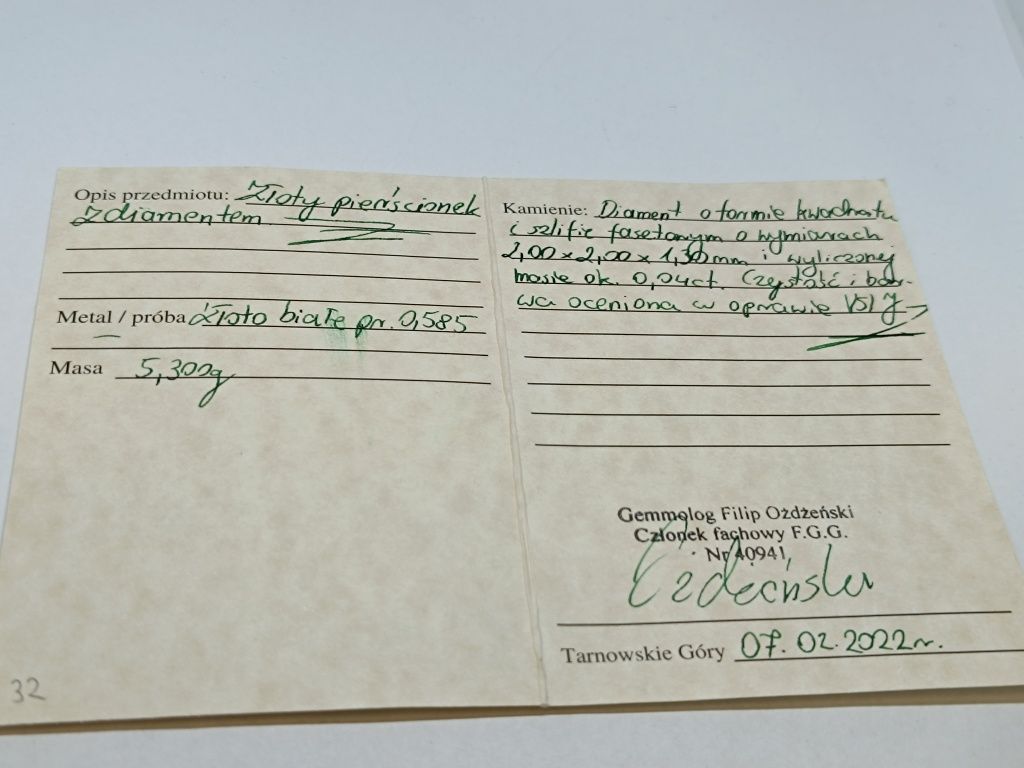 Opis przedmiotu: Złoty pierścionek
z diamentem
Metal / próba Złoto białe pr. 0,585
Masa 5,300g
32
Kamienie: Diament o formie kwadratu
i szlifie fasetowym o wymiarach
2,00 x 2,00 x 1,30 mm i wyliczonej
masie ok. 0,04ct. Czystość i bar-
wa oceniona w oprawie VS1 J
Gemmolog Filip Ożdżeński
Członek fachowy F.G.G.
Nr 40941
Ożdżeński
Tarnowskie Góry 07.02.2022r.